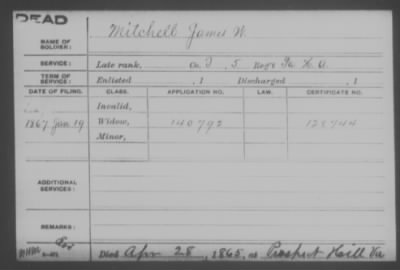 DEAD
NAME OF SOLDIER: Mitchell James W.
SERVICE: Late rank, Co. I, 5 Reg't Pa H. A.
TERM OF SERVICE: Enlisted , 1 Discharged , 1
DATE OF FILING. CLASS. APPLICATION NO. LAW. CERTIFICATE NO.
Invalid,
1867 Jan 19 Widow, 140792 128744
Minor,
ADDITIONAL SERVICES:
REMARKS:
Died Apr 28, 1865, at Prospect Hill Va